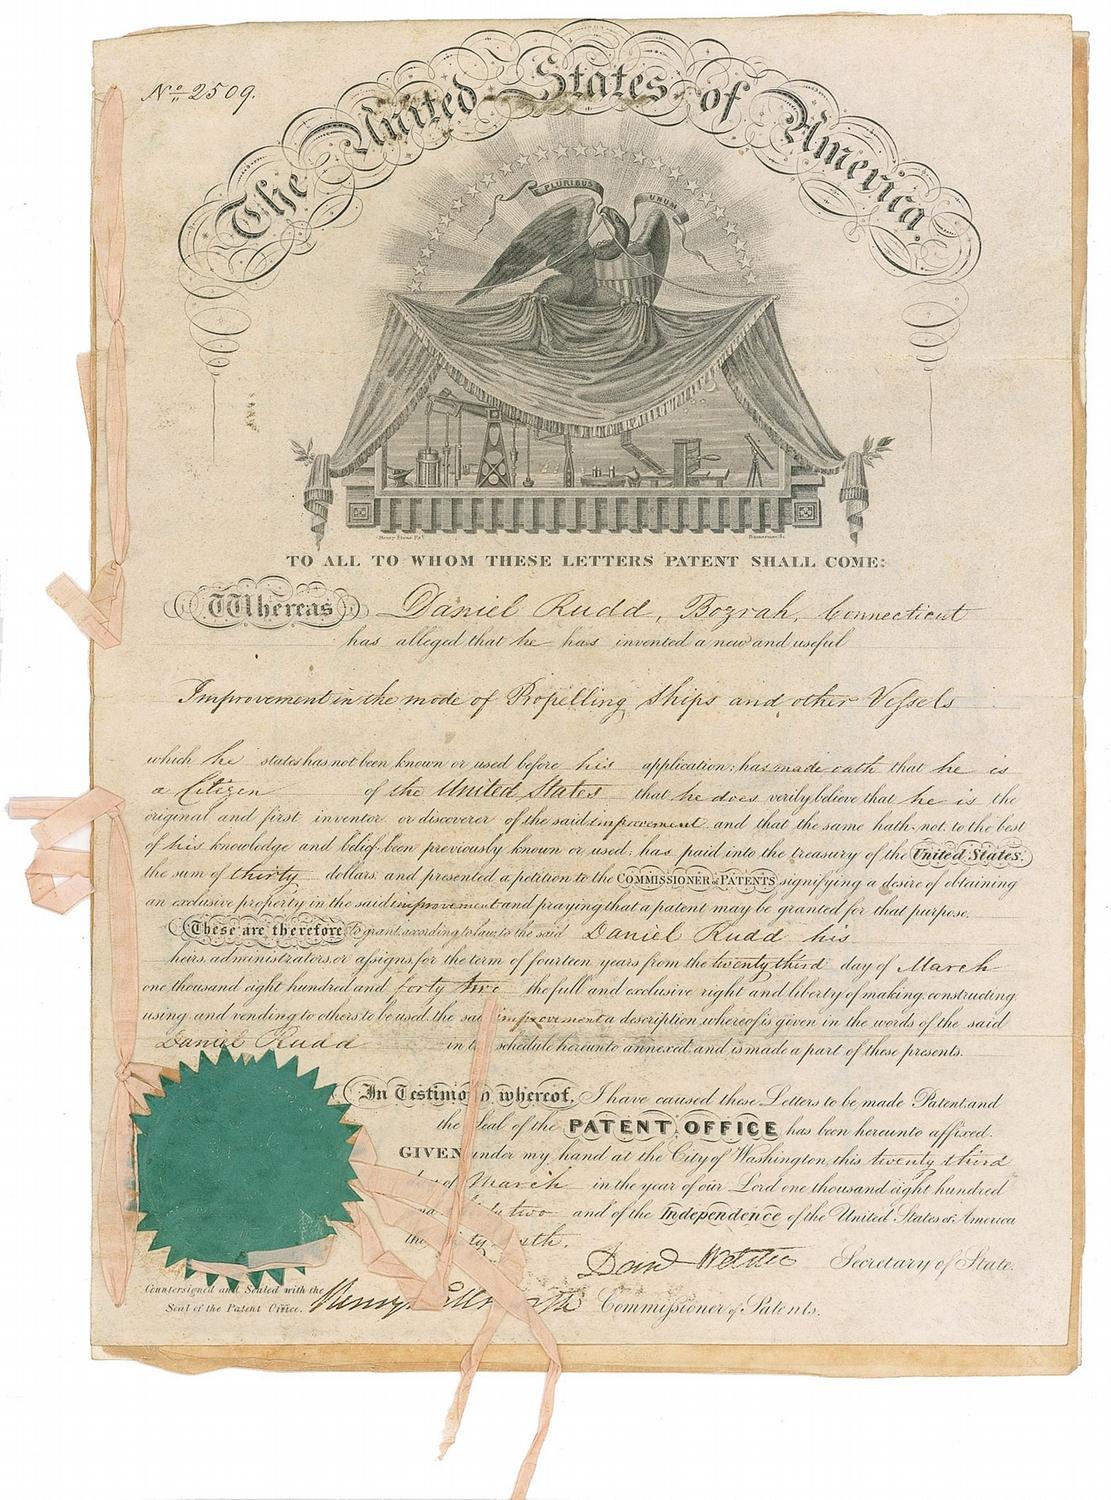 No. 2509.
The United States of America
PLURIBUS UNUM
TO ALL TO WHOM THESE LETTERS PATENT SHALL COME:
Whereas Daniel Rudd, Bozrah, Connecticut
has alleged that he has invented a new and useful
Improvement in the mode of Propelling Ships and other Vessels
which he states has not been known or used before his application; has made oath that he is
a Citizen of the United States that he does verily believe that he is the
original and first inventor or discoverer of the said improvement and that the same hath not to the best
of his knowledge and belief been previously known or used; has paid into the treasury of the United States.
the sum of thirty dollars and presented a petition to the COMMISSIONER of PATENTS signifying a desire of obtaining
an exclusive property in the said improvement and praying that a patent may be granted for that purpose.
These are therefore to grant according to law, to the said Daniel Rudd his
heirs, administrators or assigns for the term of fourteen years from the twenty third day of March
one thousand eight hundred and forty two the full and exclusive right and liberty of making, constructing
using and vending to others to be used the said improvement a description whereof is given in the words of the said
Daniel Rudd in t schedule hereunto annexed and is made a part of these presents.
In Testimony whereof, I have caused these Letters to be made Patent and
the Seal of the PATENT OFFICE has been hereunto affixed.
GIVEN under my hand at the City of Washington, this twenty third
of March in the year of our Lord one thousand eight hundred
two and of the Independence of the United States of America
the
Danl Webster Secretary of State.
Countersigned and Sealed with the
Seal of the Patent Office. Henry Commissioner of Patents.